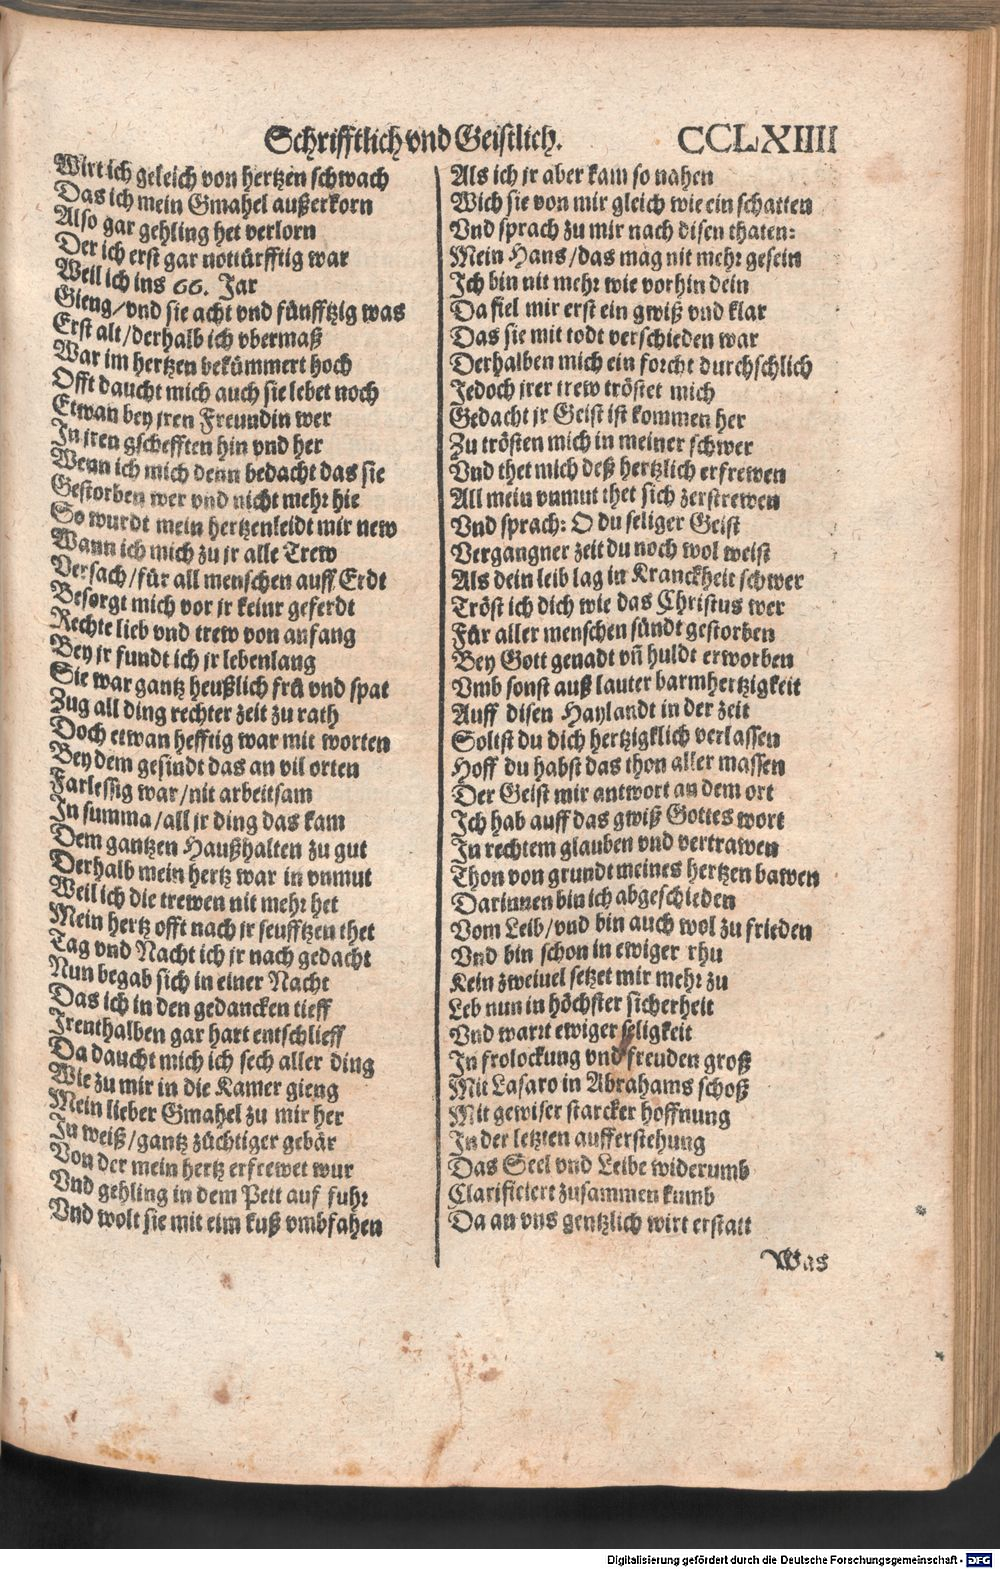 Schrifftlich vnd Geistlich. CCLXIIII
Wirt ich geleich von hertzen schwach
Das ich mein Gmahel außerkorn
Also gar gehling het verlorn
Der ich erst gar nottürfftig war
Weil ich ins 66. Jar
Gieng/vnd sie acht vnd fünfftzig was
Erst alt/derhalb ich vbermaß
War im hertzen bekümmert hoch
Offt daucht mich auch sie lebet noch
Etwan bey jren Freundin wer
In jren gschefften hin vnd her
Wenn ich mich denn bedacht das sie
Gestorben wer vnd nicht mehr hie
So wurdt mein hertzenleidt mir new
Wann ich mich zu jr alle Trew
Versach/für all menschen auff Erdt
Besorgt mich vor jr keinr geferdt
Rechte lieb vnd trew von anfang
Bey jr fundt ich jr lebenlang
Sie war gantz heußlich frü vnd spat
Zug all ding rechter zeit zu rath
Doch etwan hefftig war mit worten
Bey dem gesindt das an vil orten
Farlessig war/nit arbeitsam
In summa/all jr ding das kam
Dem gantzen Haußhalten zu gut
Derhalb mein hertz war in vnmut
Weil ich die trewen nit mehr het
Mein hertz offt nach jr seufftzen thet
Tag vnd Nacht ich jr nach gedacht
Nun begab sich in einer Nacht
Das ich in den gedancken tieff
Irenthalben gar hart entschlieff
Da daucht mich ich sech aller ding
Wie zu mir in die Kamer gieng
Mein lieber Gmahel zu mir her
In weiß/gantz züchtiger gebär
Von der mein hertz erfrewet wur
Vnd gehling in dem Pett auf fuhr
Vnd wolt sie mit eim kuß vmbfahen
Als ich jr aber kam so nahen
Wich sie von mir gleich wie ein schatten
Vnd sprach zu mir nach disen thaten:
Mein Hans/das mag nit mehr gesein
Ich bin nit mehr wie vorhin dein
Da fiel mir erst ein gwiß vnd klar
Das sie mit todt verschieden war
Derhalben mich ein forcht durchschlich
Jedoch jrer trew tröstet mich
Gedacht jr Geist ist kommen her
Zu trösten mich in meiner schwer
Vnd thet mich deß hertzlich erfrewen
All mein vnmut thet sich zerstrewen
Vnd sprach: O du seliger Geist
Vergangner zeit du noch wol weist
Als dein leib lag in Kranckheit schwer
Tröst ich dich wie das Christus wer
Für aller menschen sündt gestorben
Bey Gott genadt vñ huldt erworben
Vmb sonst auß lauter barmhertzigkeit
Auff disen Haylandt in der zeit
Soltst du dich hertzigklich verlassen
Hoff du habst das thon aller massen
Der Geist mir antwort an dem ort
Ich hab auff das gwiß Gottes wort
In rechtem glauben vnd vertrawen
Thon von grundt meines hertzen bawen
Darinnen bin ich abgeschieden
Vom Leib/vnd bin auch wol zu frieden
Vnd bin schon in ewiger rhu
Kein zweiuel setzet mir mehr zu
Leb nun in höchster sicherheit
Vnd wart ewiger seligkeit
In frolockung vnd freuden groß
Mit Lasaro in Abrahams schoß
Mit gewiser starcker hoffnung
In der letzten aufferstehung
Das Seel vnd Leibe widerumb
Clarificiert zusammen kumb
Da an vns gentzlich wirt erstatt
Was
Digitalisierung gefördert durch die Deutsche Forschungsgemeinschaft - DFG